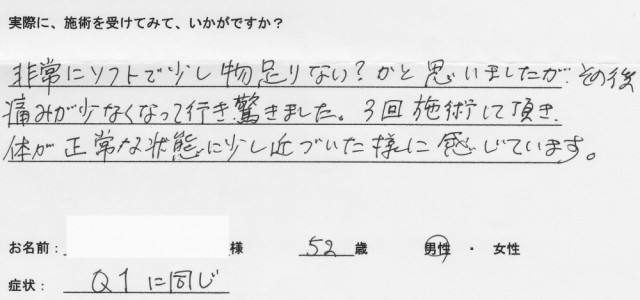 実際に、施術を受けてみて、いかがですか?
非常にソフトで少し物足りない?かと思いましたが、その後
痛みが少なくなって行き驚きました。3回施術して頂き、
体が正常な状態に少し近づいた様に感じています。
お名前: 様 52 歳 男性 ・ 女性
症状: Q1に同じ